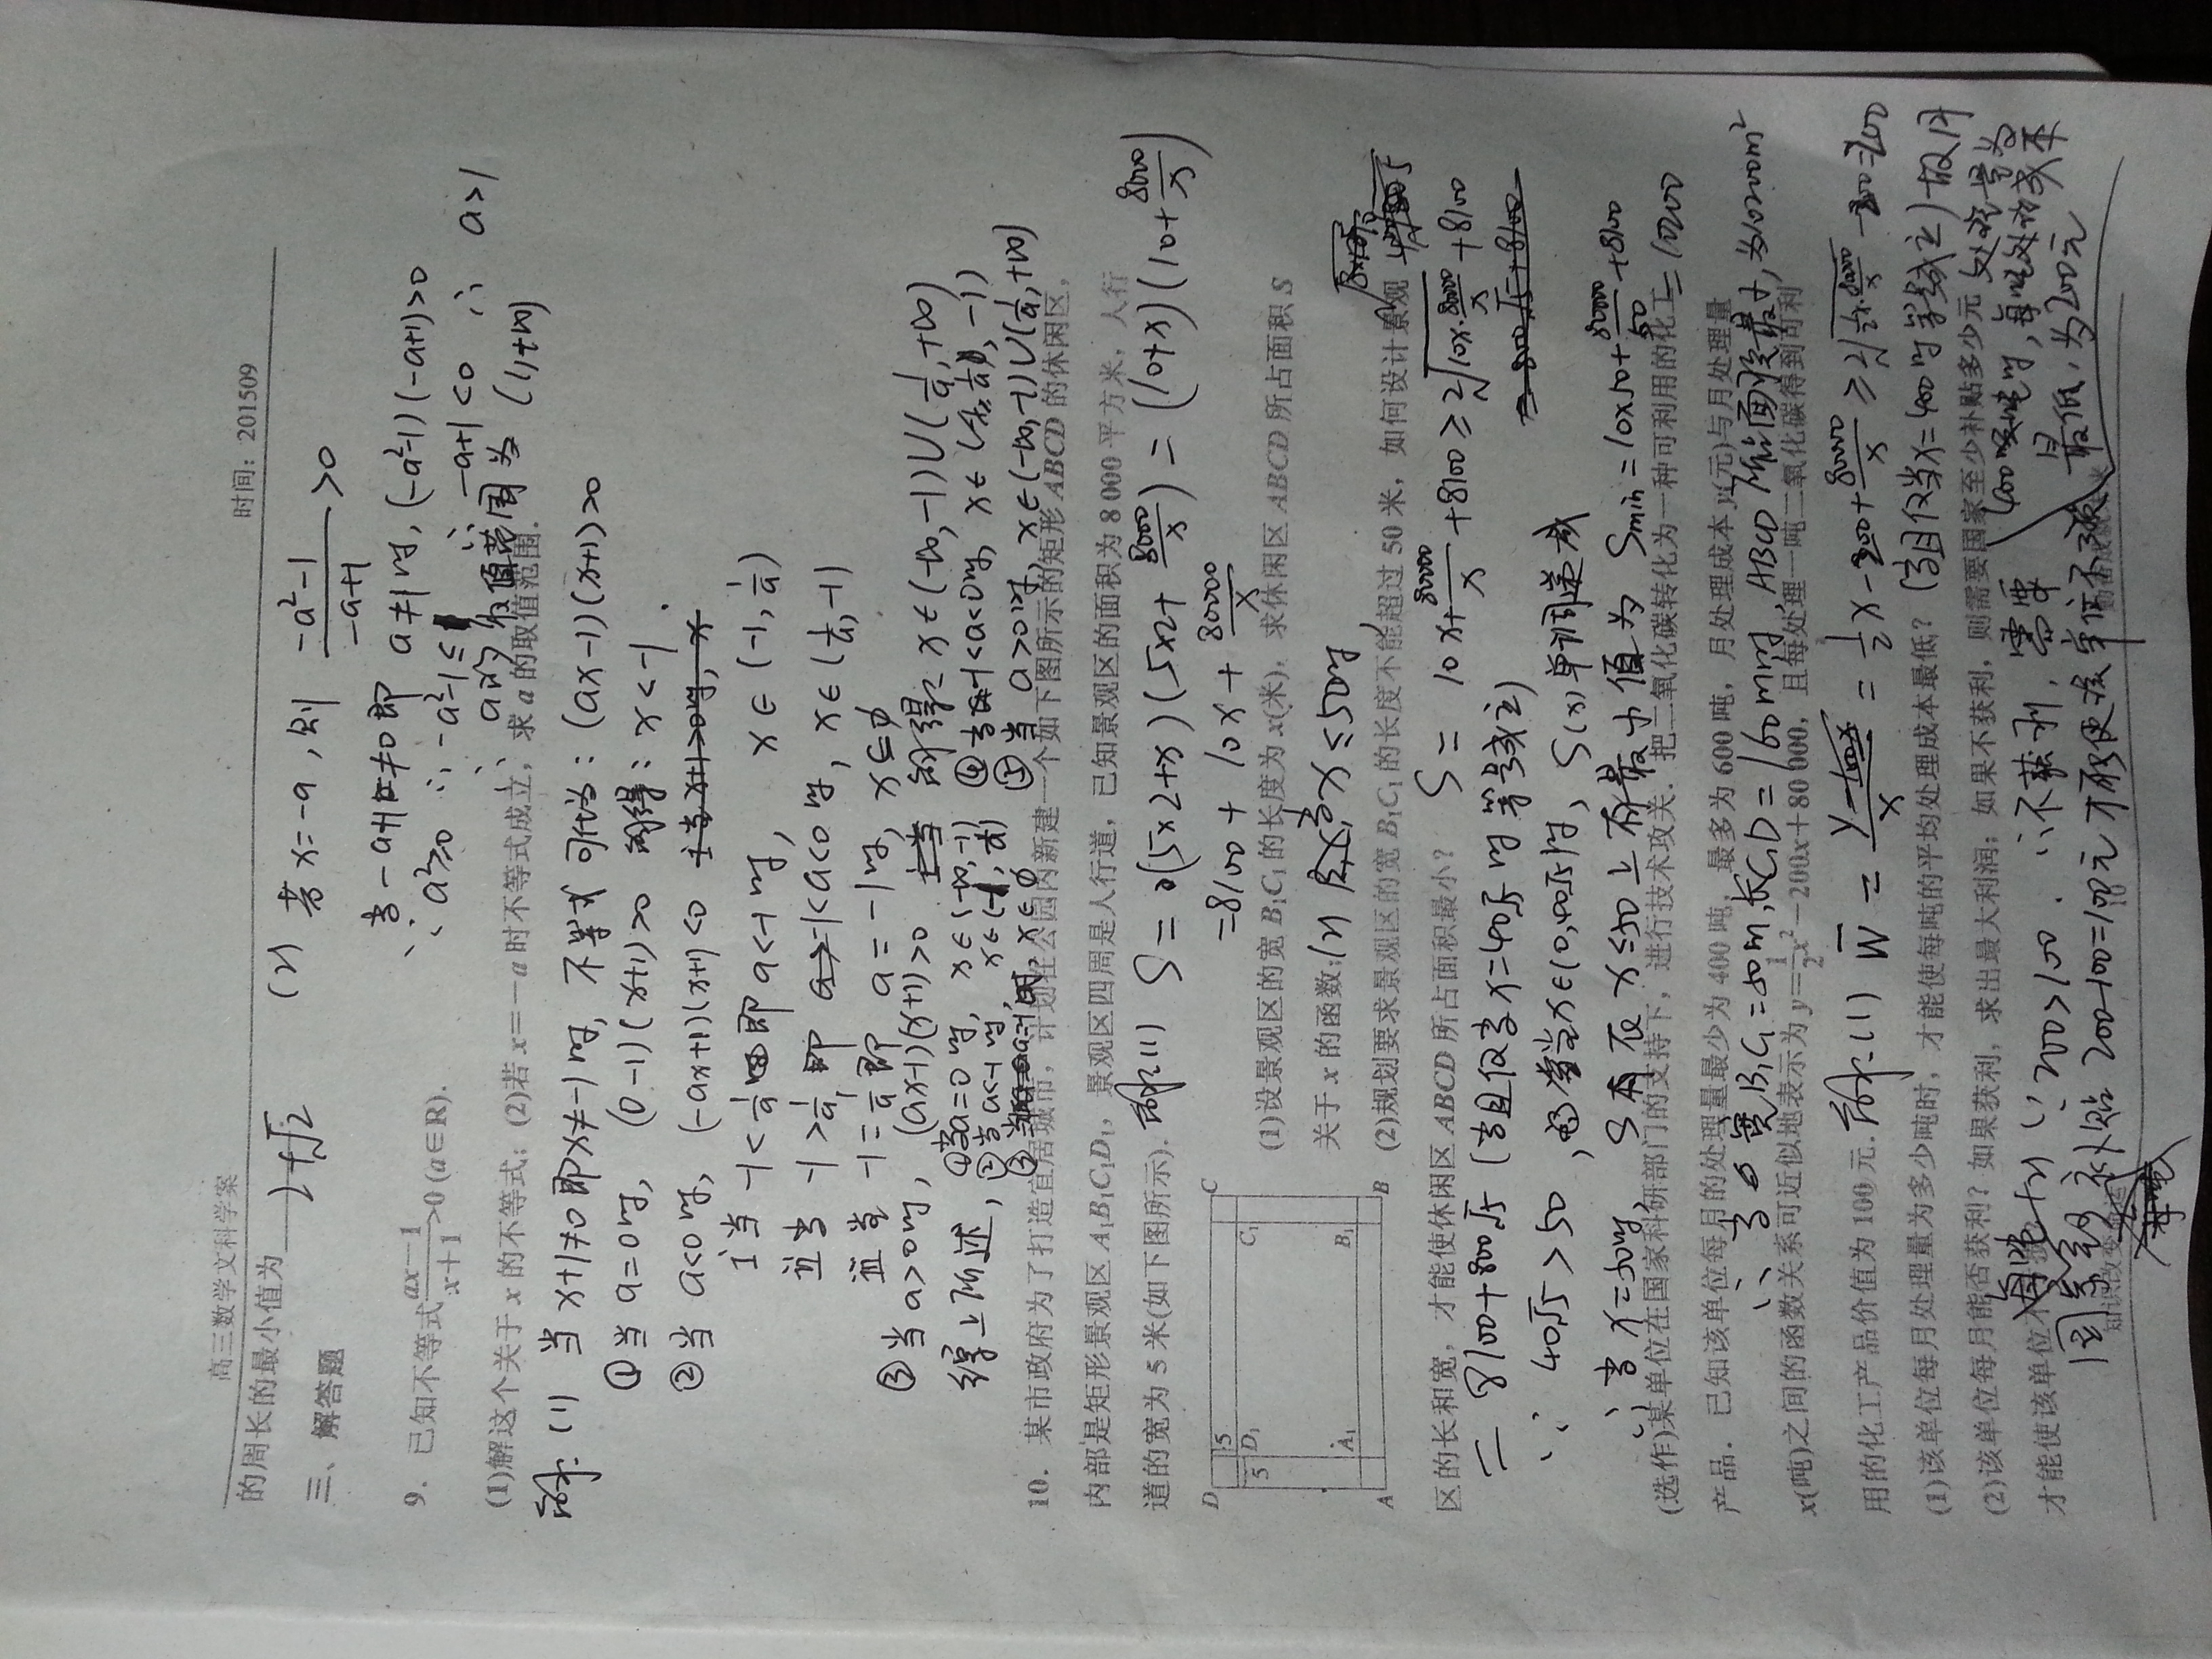 高三数学文科学案
时间：201509
的周长的最小值为 2+√2
三、解答题
(2) 若x=-a，则 (-a²-1)/(-a+1) >0
当-a+1≠0即 a≠1时，(-a²-1)(-a+1)>0
∵a²≥0 ∴-a²-1≤ ∴-a+1<0 ∴ a>1
∴ a的取值范围为 (1,+∞)
9．已知不等式(ax−1)/(x+1)>0 (a∈R).
(1)解这个关于 x 的不等式；(2)若 x=−a 时不等式成立，求 a 的取值范围.
解：(1) 当x+1≠0即x≠-1时，不等式可化为：(ax-1)(x+1)>0
①当 a=0时，(0-1)(x+1)>0 解得：x<-1.
②当 a<0时，(-ax+1)(x+1)<0
i当 -1<1/a即 a<-1时，x∈(-1,1/a)
ii当 -1>1/a，即 -1<a<0时，x∈(1/a,-1)
iii当 -1=1/a即 a=-1时，x∈∅
③当a>0时，(ax-1)(x+1)>0 解得：x∈(-∞,-1)∪(1/a,+∞)
综上所述，①当a=0时，x∈(-∞,-1) ④当-1<a<0时，x∈(1/a,-1)
②当a<-1时，x∈(-1,1/a)
③当a=-1时，x∈∅ ⑤当 a>0时，x∈(-∞,-1)∪(1/a,+∞)
10．某市政府为了打造宜居城市，计划在公园内新建一个如下图所示的矩形 ABCD 的休闲区，
内部是矩形景观区 A₁B₁C₁D₁，景观区四周是人行道，已知景观区的面积为 8 000 平方米，人行
道的宽为 5 米(如下图所示).
解：(1) S=(5×2+x)(5×2+8000/x)=(10+x)(10+8000/x)
=8100+10x+80000/x
D 5 C
5 D₁ C₁
A₁ B₁
A B
(1)设景观区的宽 B₁C₁ 的长度为 x(米)，求休闲区 ABCD 所占面积 S
关于 x 的函数；
(2) 当x≤50时，
(2)规划要求景观区的宽 B₁C₁ 的长度不能超过 50 米，如何设计景观
区的长和宽，才能使休闲区 ABCD 所占面积最小？
S=10x+80000/x+8100≥2√(10x·80000/x)+8100
=8100+800√5 (当且仅当x=40√5时等号成立)
∵ 40√5>50，当x∈(0,40√5)时，S(x)单调递减
∴当x=50时，S在x≤50上有最小值为 Smin=10×50+80000/50+8100
=10200
(选作)某单位在国家科研部门的支持下，进行技术攻关．把二氧化碳转化为一种可利用的化工
产品．已知该单位每月的处理量最少为 400 吨，最多为 600 吨，月处理成本 y(元)与月处理量
∴当宽B₁C₁=50m，长C₁D=160m时，ABCD所占面积最小，为10200m²
x(吨)之间的函数关系可近似地表示为 y=1/2x²−200x+80 000，且每处理一吨二氧化碳得到可利
用的化工产品价值为 100 元.
解：(1) W̄=y/x=1/2x-200+80000/x≥2√(1/2x·80000/x)-200=200
(1)该单位每月处理量为多少吨时，才能使每吨的平均处理成本最低？
(当且仅当x=400时等号成立) 故月
处理量为
400吨时，每吨处理成本
最低，为200元
(2)该单位每月能否获利？如果获利，求出最大利润；如果不获利，则需要国家至少补贴多少元
才能使该单位不亏损？
(2) ∵200>100．∴不获利，需要
国家每吨补贴 200-100=100元才能使该单位不亏损
知识改变命运 10